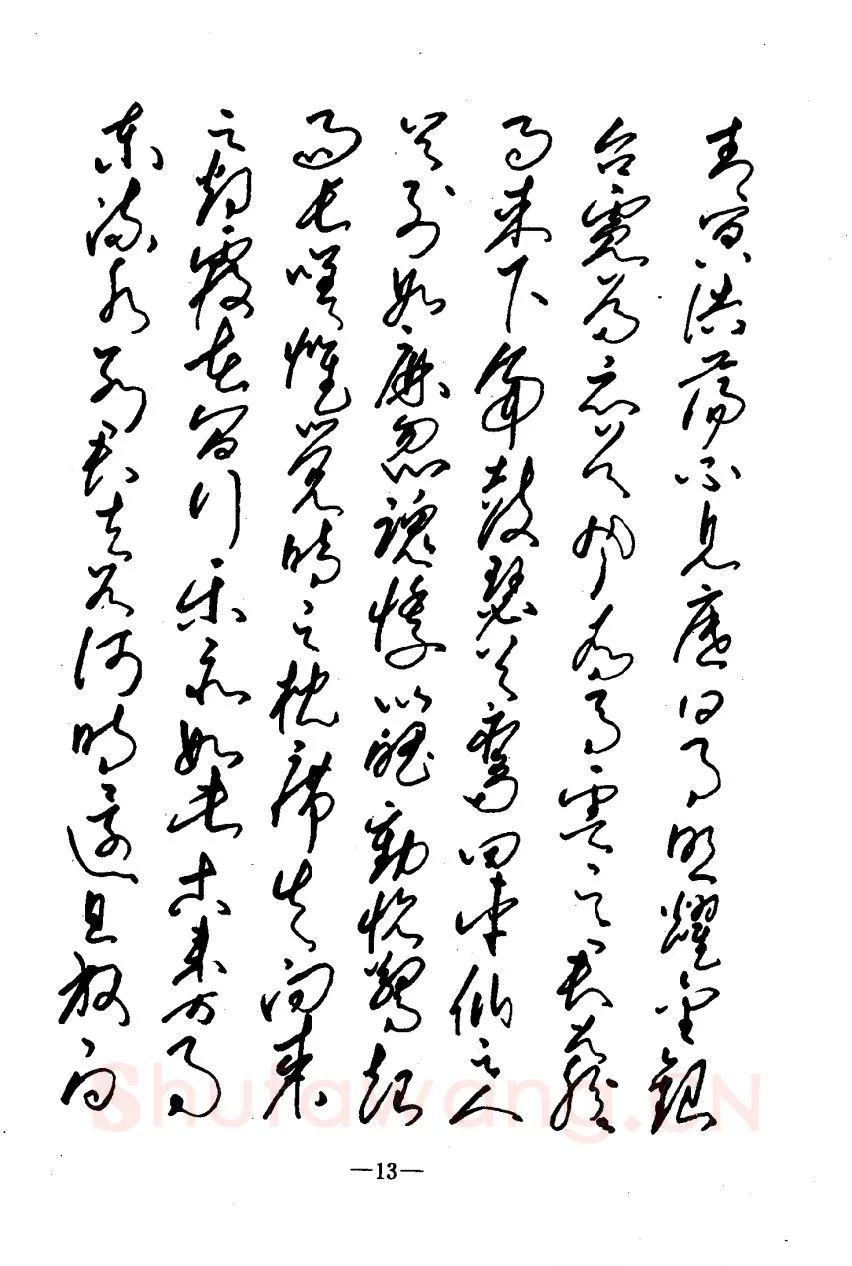 青冥浩荡不见底日月照耀金银
台霓为衣兮风为马云之君兮纷纷
而来下虎鼓瑟兮鸾回车仙之人
兮列如麻忽魂悸以魄动恍惊起
而长嗟惟觉时之枕席失向来
之烟霞世间行乐亦如此古来万事
东流水别君去兮何时还且放白
Shufawang.CN
—13—